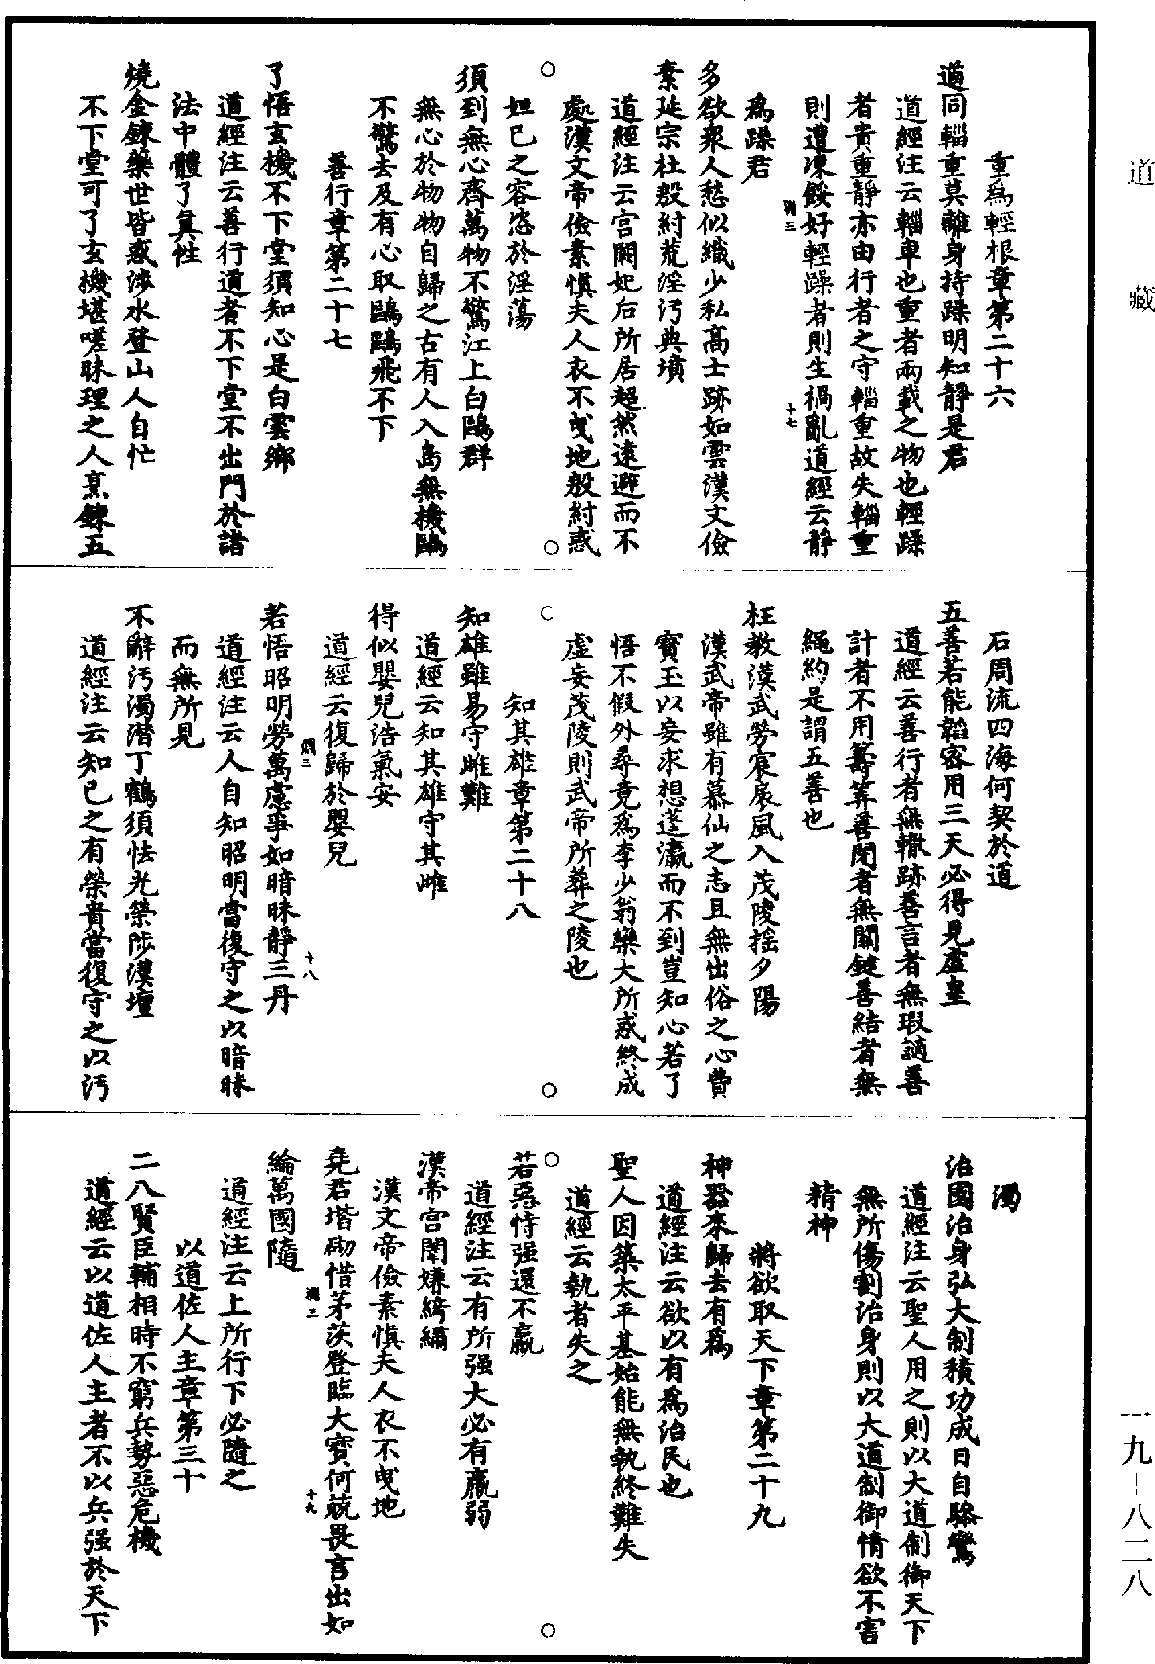 道藏
重爲輕根章第二十六
適同輜重莫離身持躁明知靜是君
道經注云輜車也重者兩載之物也輕躁
者貴重靜亦由行者之守輜重故失輜重
則遭凍餒好輕躁者則生禍亂道經云靜
爲躁君
多欲衆人愁似織少私高士跡如雲漢文儉
素延宗社殷紂荒淫污典墳
道經注云宮闕妃后所居超然遠避而不
處漢文帝儉素慎夫人衣不曳地殷紂惑
妲己之容恣於淫蕩
須到無心齊萬物不驚江上白鷗群
無心於物物自歸之古有人入島無機鷗
不驚去及有心取鷗鷗飛不下
善行章第二十七
了悟玄機不下堂須知心是白雲鄉
道經注云善行道者不下堂不出門於諸
法中體了真性
燒金鍊藥世皆惑涉水登山人自忙
不下堂可了玄機堪嗟昧理之人烹鍊五
石周流四海何契於道
五善若能韜密用三天必得見虛皇
道經云善行者無轍跡善言者無瑕讁善
計者不用籌筭善閉者無關鍵善結者無
繩約是謂五善也
枉教漢武勞宸扆風入茂陵搖夕陽
漢武帝雖有慕仙之志且無出俗之心費
寶玉以妄求想蓬瀛而不到豈知心若了
悟不假外尋竟爲李少翁欒大所惑終成
虛妄茂陵則武帝所葬之陵也
知其雄章第二十八
知雄雖易守雌難
道經云知其雄守其雌
得似嬰兒浩氣安
道經云復歸於嬰兒
若悟昭明勞萬慮爭如暗昧靜三丹
道經注云人自知昭明當復守之以暗昧
而無所見
不辭污濁潛丁鶴須怯光榮陟漢壇
道經注云知己之有榮貴當復守之以污
濁
治國治身弘大制積功成日自驂鸞
道經注云聖人用之則以大道制御天下
無所傷割治身則以大道制御情欲不害
精神
將欲取天下章第二十九
神器來歸去有爲
道經注云欲以有爲治民也
聖人因築太平基始能無執終難失
道經云執者失之
若惡恃强還不羸
道經注云有所强大必有羸弱
漢帝宮閨嫌綺繡
漢文帝儉素慎夫人衣不曳地
堯君堦砌惜茅茨登臨大寶何兢畏言出如
綸萬國隨
道經注云上所行下必隨之
以道佐人主章第三十
二八賢臣輔相時不窮兵勢惡危機
道經云以道佐人主者不以兵强於天下
十七
十八
十九
一九-八二八